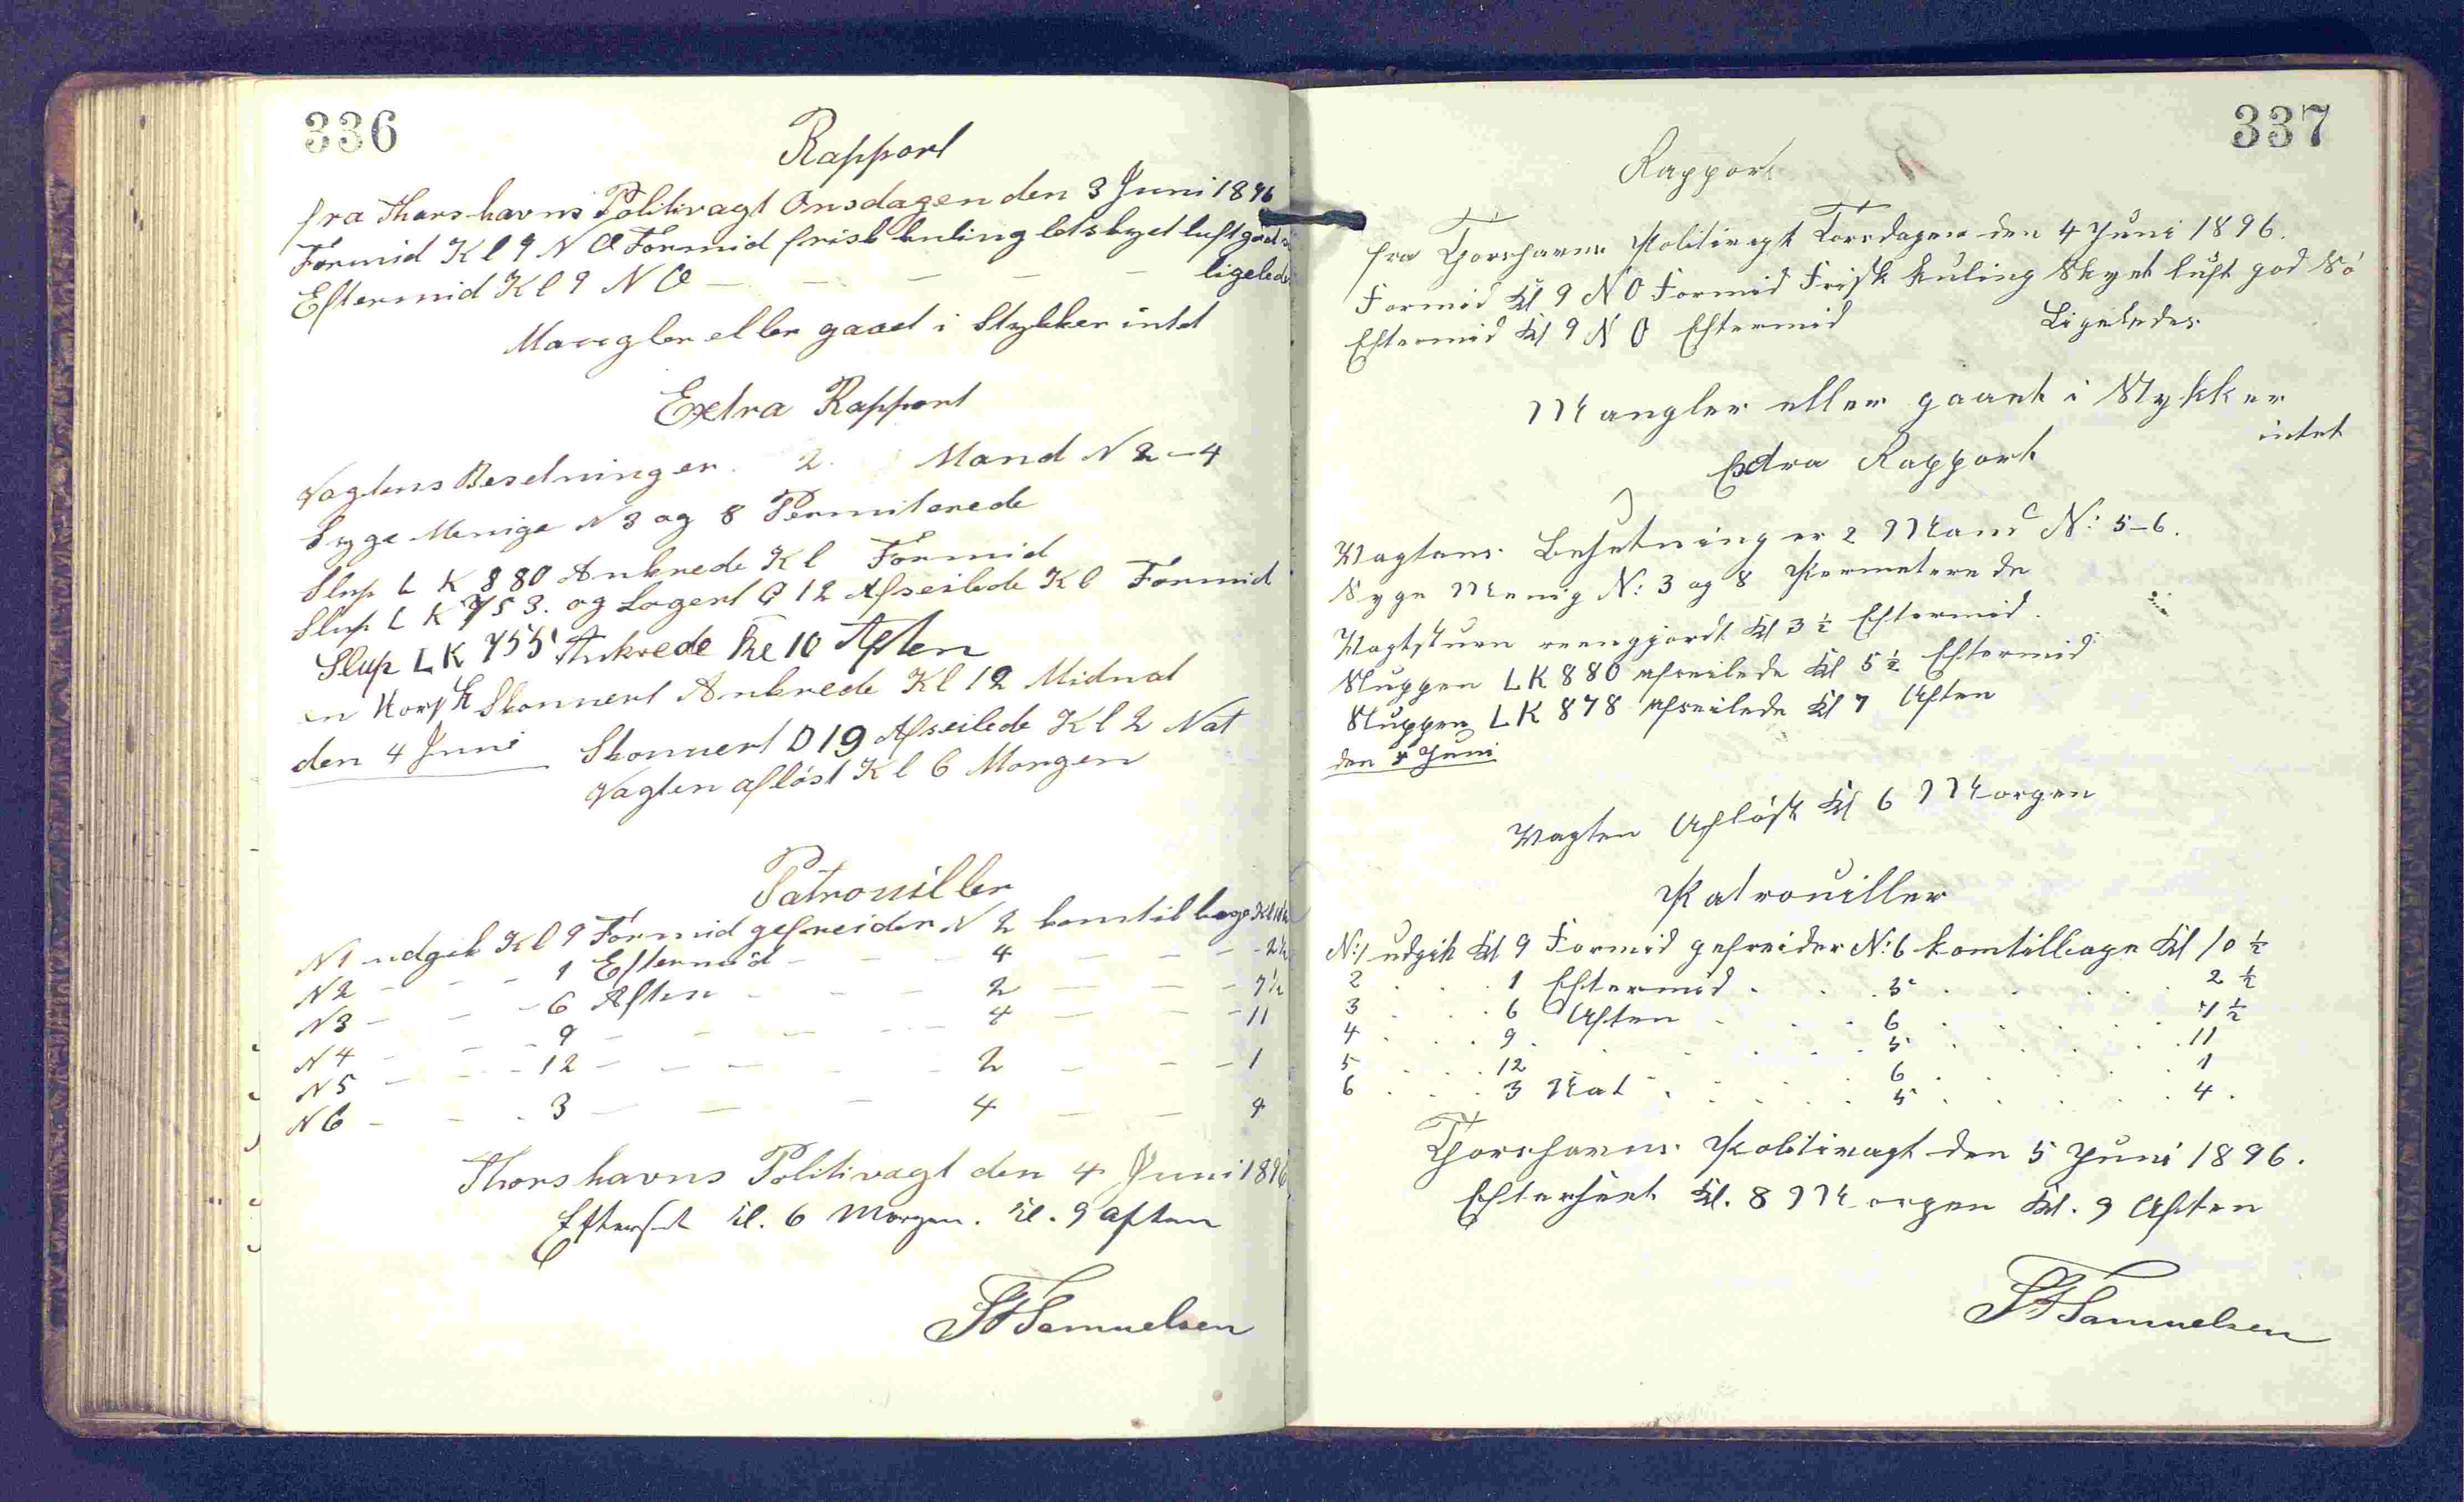 336
Rapport
fra Thorshavns Politivagt Onsdagen den 3 Juni 1896
Formid Kl 9 N O Formid frisk kuling letskyet luft god
Eftermid Kl 9 N O — — — — ligelede
Mangler eller gaaet i Stykker intet
Extra Rapport
Vagtens Besetninger. 2. Mand N 2 – 4
Syge Menige N 3 og 8 Permiterede
Slup L K 880 Ankrede Kl Formid
Slup L K 753. og Logert G 12 Afseilede Kl Formid
Slup LK 755 Ankrede Kl 10 Aften
en Norsk Skonnert Ankrede Kl 12 Midnat
den 4 Juni Skonnert D 19 Afseilede Kl 2 Nat
Vagten afløst Kl 6 Morgen
Patrouiller
N 1 udgik Kl 9 Formid gefreider N 2 kom tilbage Kl
N 2 – – – 1 Eftermid – – – 4 – – – – 2½
N 3 – – – 6 Aften – – – 2 – – – 7½
N 4 – – – 9 – – – – 4 – – – 11
N 5 – – – 12 – – – – 2 – – – 1
N 6 – – – 3 – – – 4 – – 4
Thorshavns Politivagt den 4 Juni 1896
Efterset Kl. 6 Morgen. Kl. 9 Aften
Samuelsen
337
Rapport
fra Thorshavns Politivagt Torsdagen den 4 Juni 1896.
Formid Kl 9 N O Formid Frisk Kuling Skyet luft god Sö
Eftermid Kl 9 N O Eftermid Ligeledes
Mangler eller gaaet i Stykker
intet
Extra Rapport
Vagtens Besetning er 2 Mand N: 5–6.
Syge Menig N: 3 og 8 Permeterede
Vagtstuen reengjordt Kl 3½ Eftermid.
Sluppen LK 880 afseilede Kl 5½ Eftermid
Sluppen LK 878 afseilede Kl 7 Aften
den 5 Juni
Vagten Afløst Kl 6 Morgen
Patrouiller
N: 1 udgik Kl 9 Formid gefreider N: 6 kom tilbage Kl 10½
2 . . . 1 Eftermid . . . 5 . . . . 2½
3 . . . 6 Aften . . . 6 . . . . 7½
4 . . . 9 . . . . 5 . . . . 11
5 . . . 12 . . . . 6 . . . . 1
6 . . . 3 Nat . . . . 5 . . . . 4.
Thorshavns Politivagt den 5 Juni 1896.
Efterseet Kl. 8 Morgen Kl. 9 Aften
Samuelsen